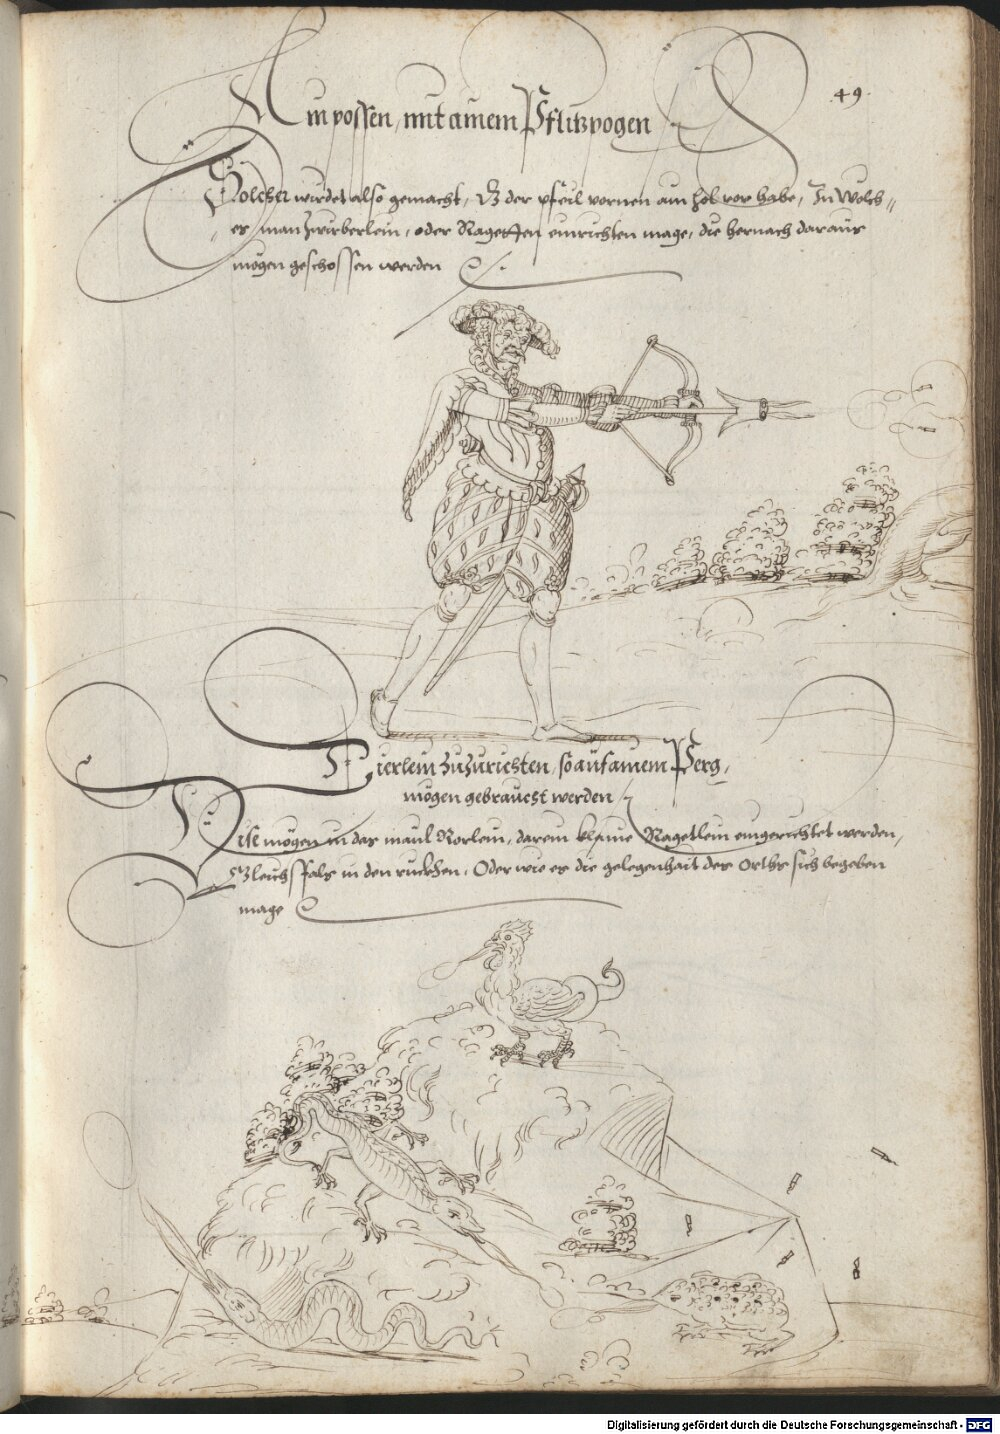 49.
Ain possen, mit ainem Pflitzpogen
Solcher wirdet also gemacht, Das der pfeil vornen ain hol ror habe, In Wolch=
es man Zwirberlein, oder Ragetten einrichten mage, die hernach daraus
mögen geschossen werden
Tierlein zuZurichten, so auf ainem Perg,
mögen gebraucht werden
Dise mögen in das maul Rorlein, darein klaine Ragetlein eingerichtet werden,
Gleichsfals in den rucken, Oder wie es die gelegenhait des Orths sich begeben
mage
Digitalisierung gefördert durch die Deutsche Forschungsgemeinschaft - DFG